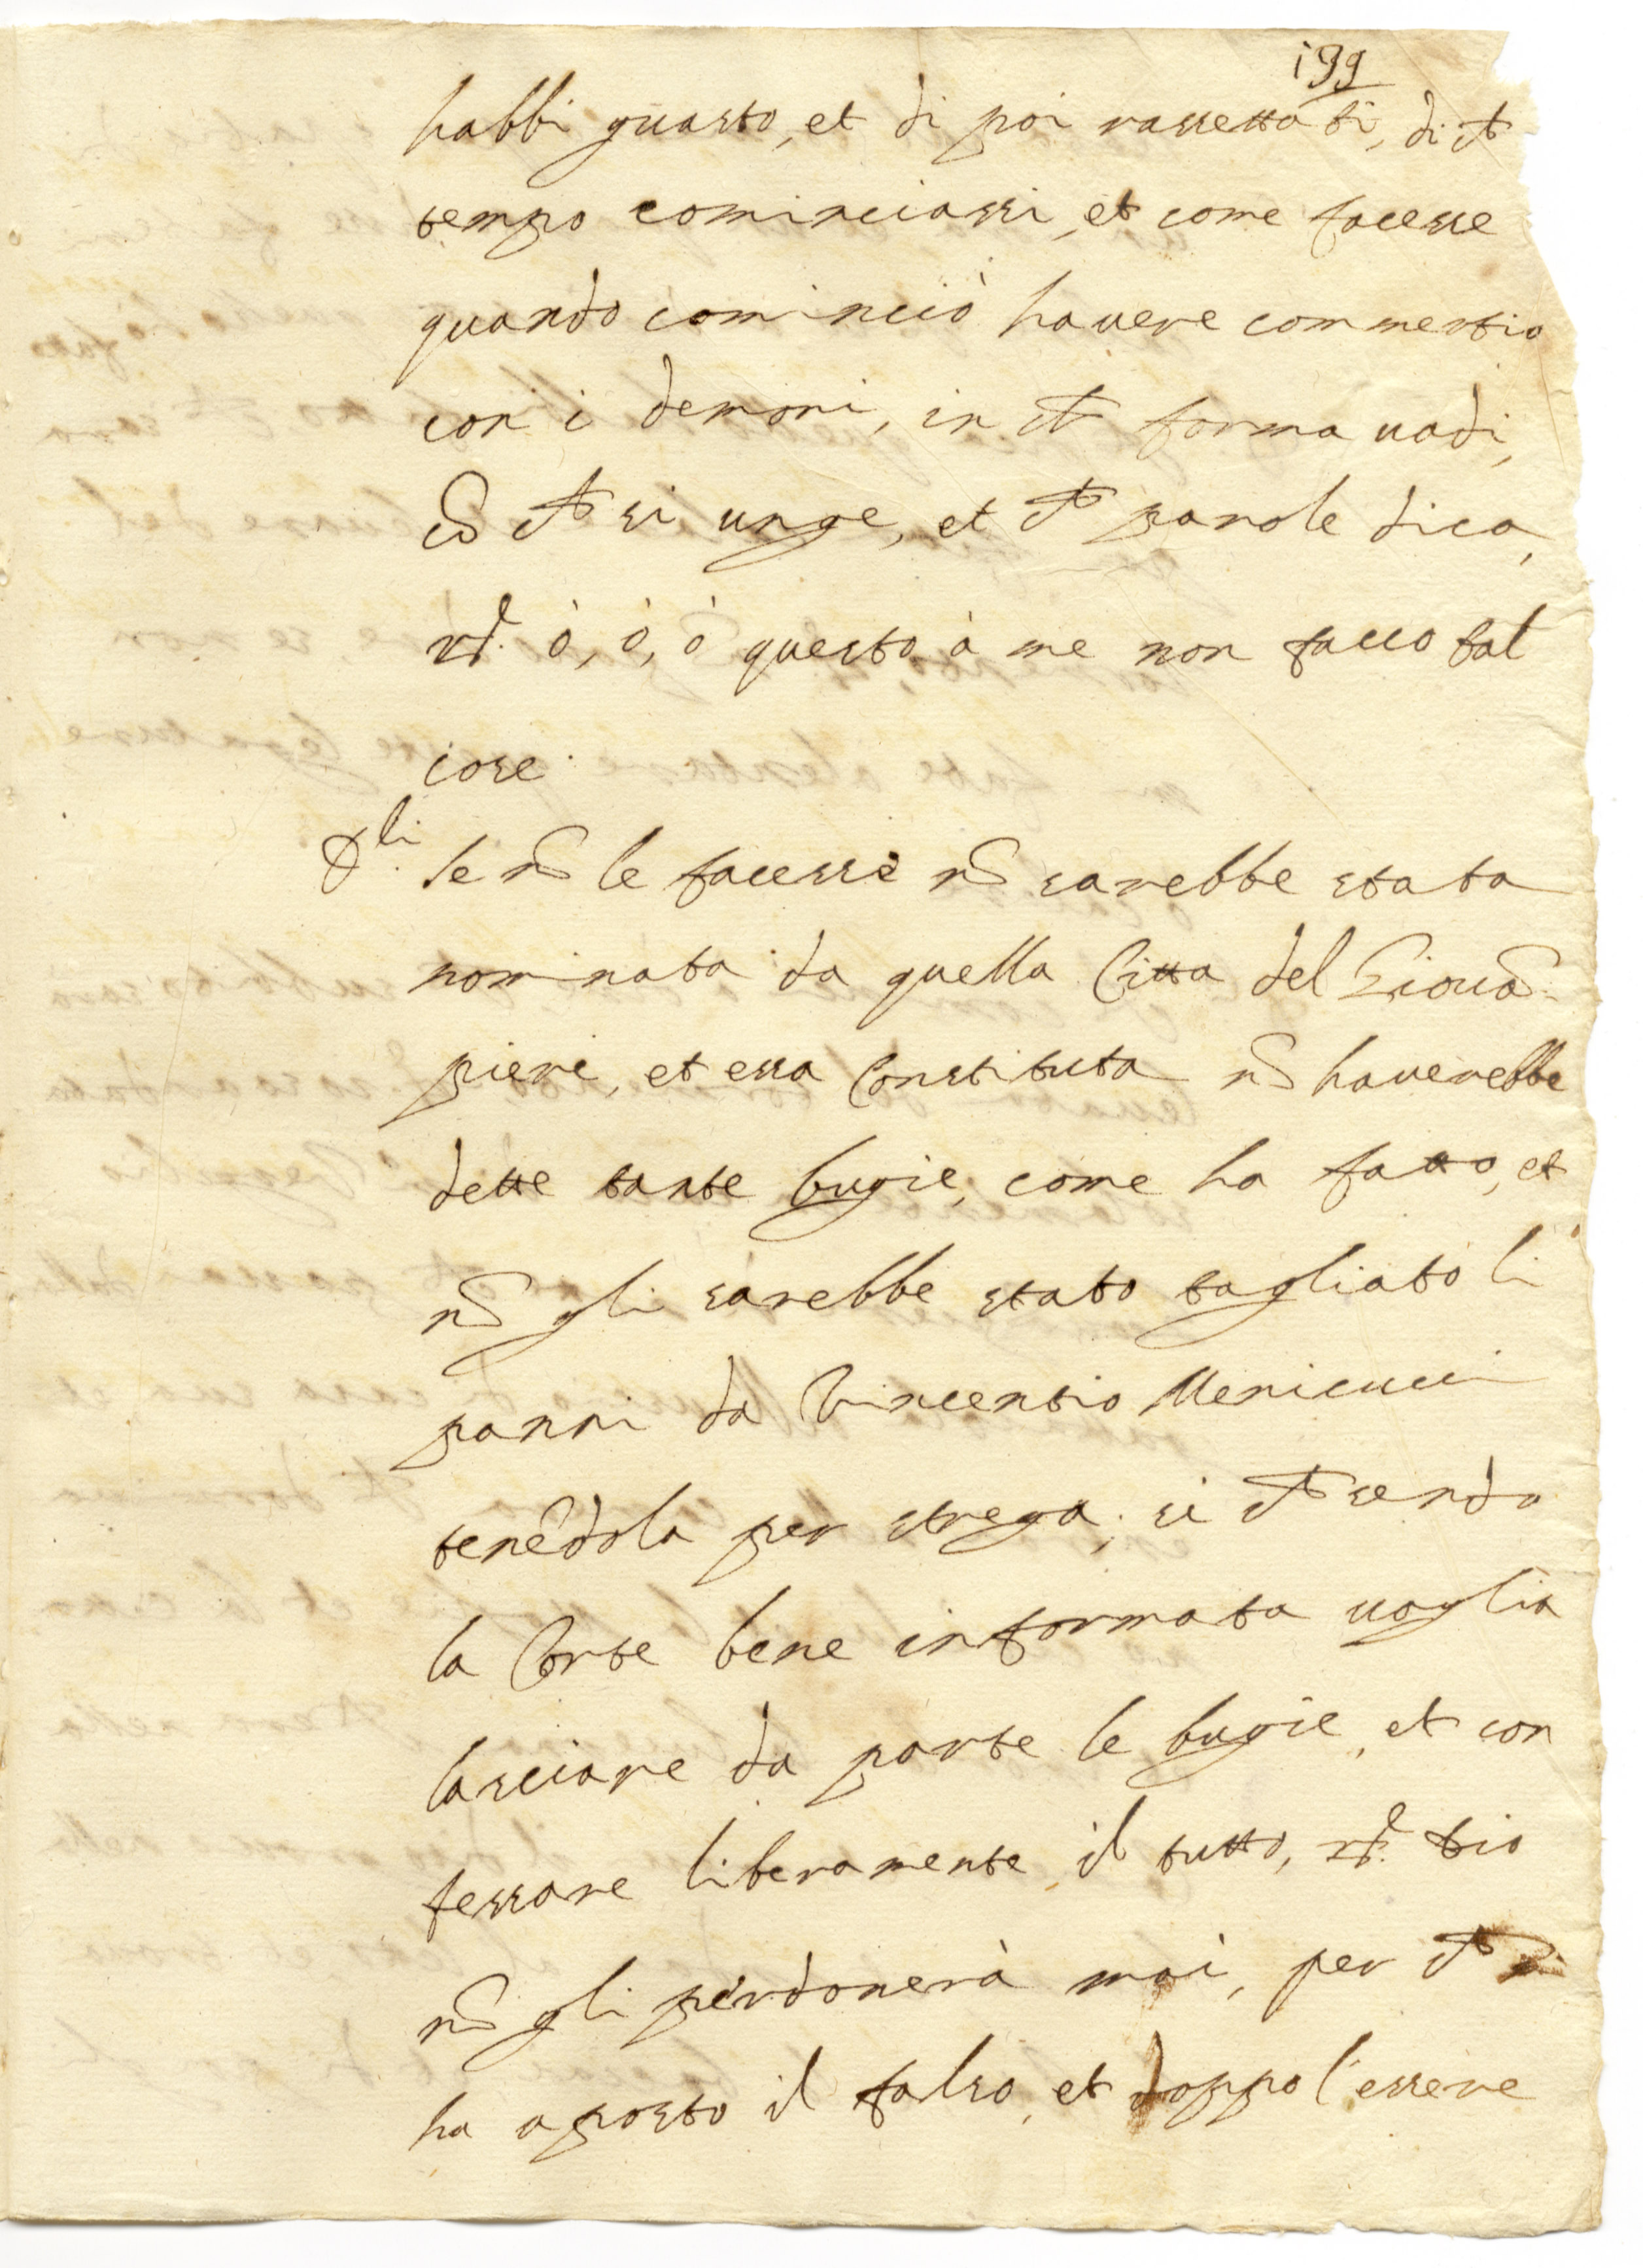 199
habbi guasto, et di poi rassettati, di ch
tempo cominciassi, et come facesse
quando cominciò havere commertio
con i demoni, in ch forma vadi,
cō ch si unge, et ch parole dica,
rd. ò, ò, ò questo à me non facco tal
cose.
Dli. se nō le facessi nō sarebbe stata
nominata da quella Citta del Giovā
pieri, et essa Constituta nō haverebbe
dette tante bugie, come ha fatto, et
nō gli sarebbe stato tagliato li
panni da Vincentio Menicucci
tenēdola per strega; si ch sendo
la Corte bene informata voglia
lasciare da parte le bugie, et con
fessare liberamente il tutto, rd. Dio
nō gli perdonerà mai, per ch
ha aposto il falso, et doppo l'essere